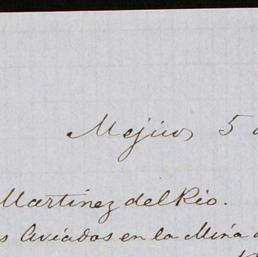 Mejico, 5
Martinez del Rio.
s Aviados en la Mina